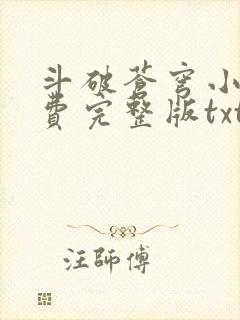 斗破苍穹小
费完整版txt
汪師傅